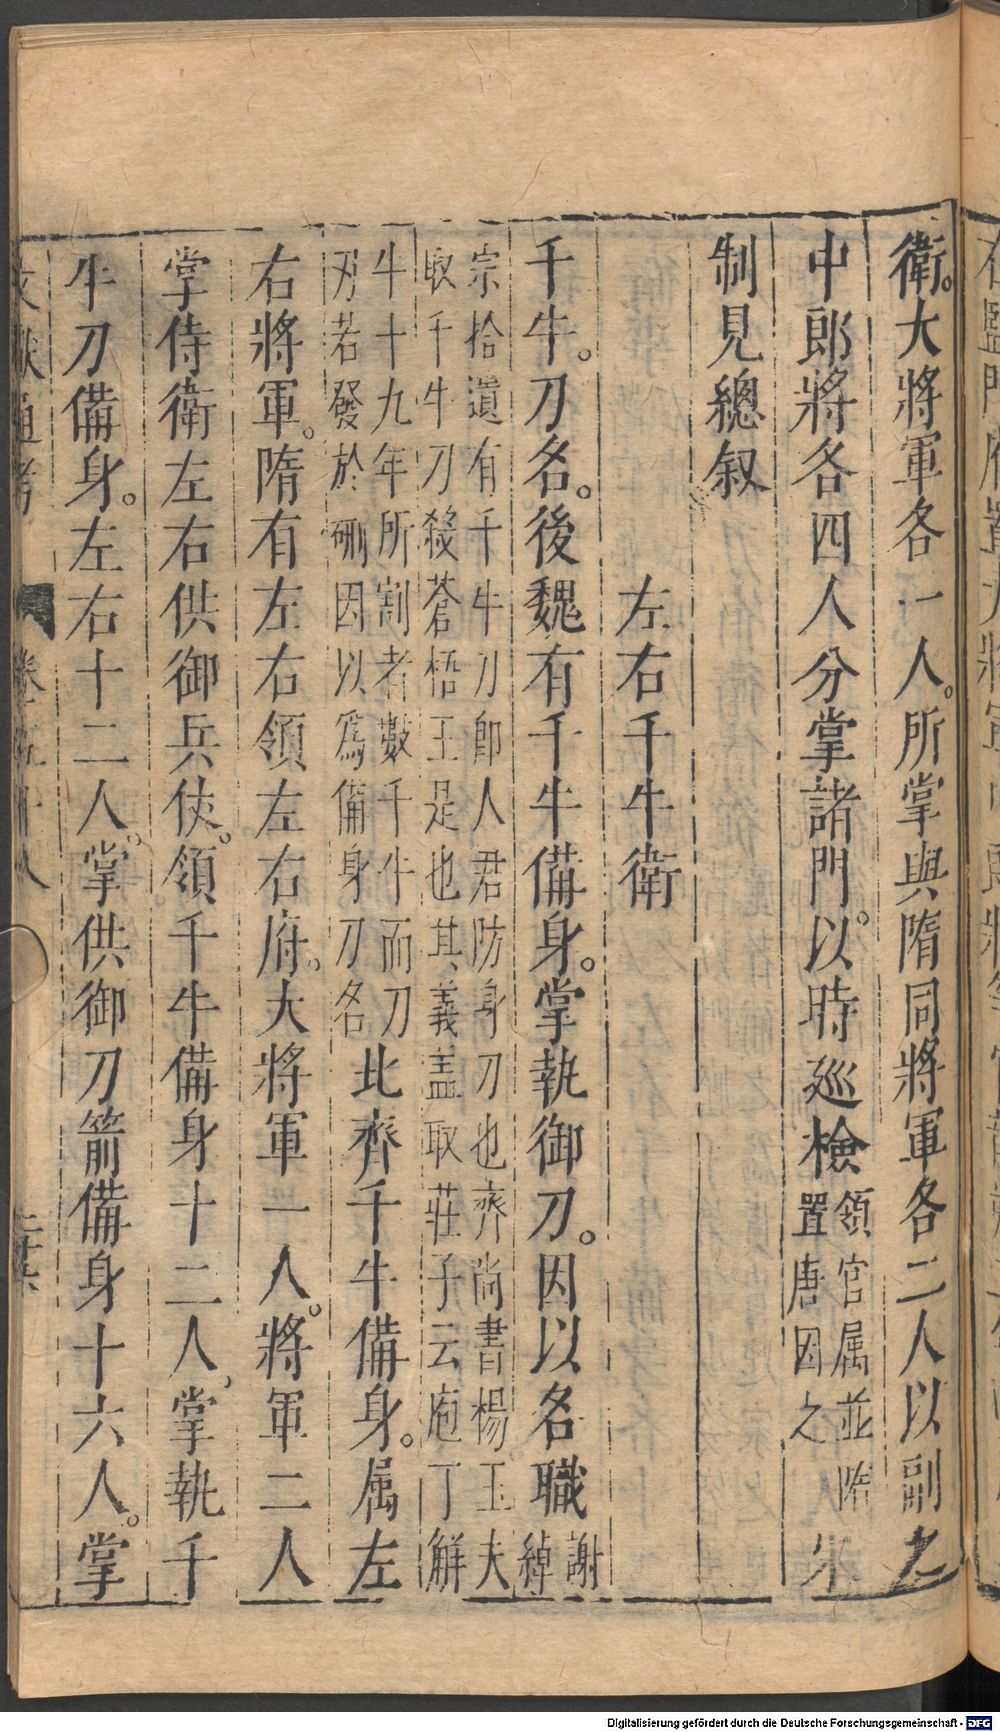 衛。大將軍各一人。所掌與隋同將軍各二人以副之
中郎將各四人分掌諸門。以時廵檢領官属並隋置唐因之宋
制見總叙
左右千牛衛
千牛。刀名。後魏有千牛備身。掌執御刀。因以名職謝綽
宗拾遺有千牛刀即人君防身刀也齊尚書楊玉夫
取千牛刀殺蒼梧王是也其義盖取莊子云庖丁解
牛十九年所割者數千牛而刀
刃若發於硎因以為備身刀名
北齊千牛備身。属左
右將軍。隋有左右領左右府。大將軍一人。將軍二人
掌侍衛左右供御兵仗。領千牛備身十二人掌執千
牛刀備身。左右十二人。掌供御刀箭備身十六人。掌
文獻通考 卷五十八
Digitalisierung gefördert durch die Deutsche Forschungsgemeinschaft - DFG